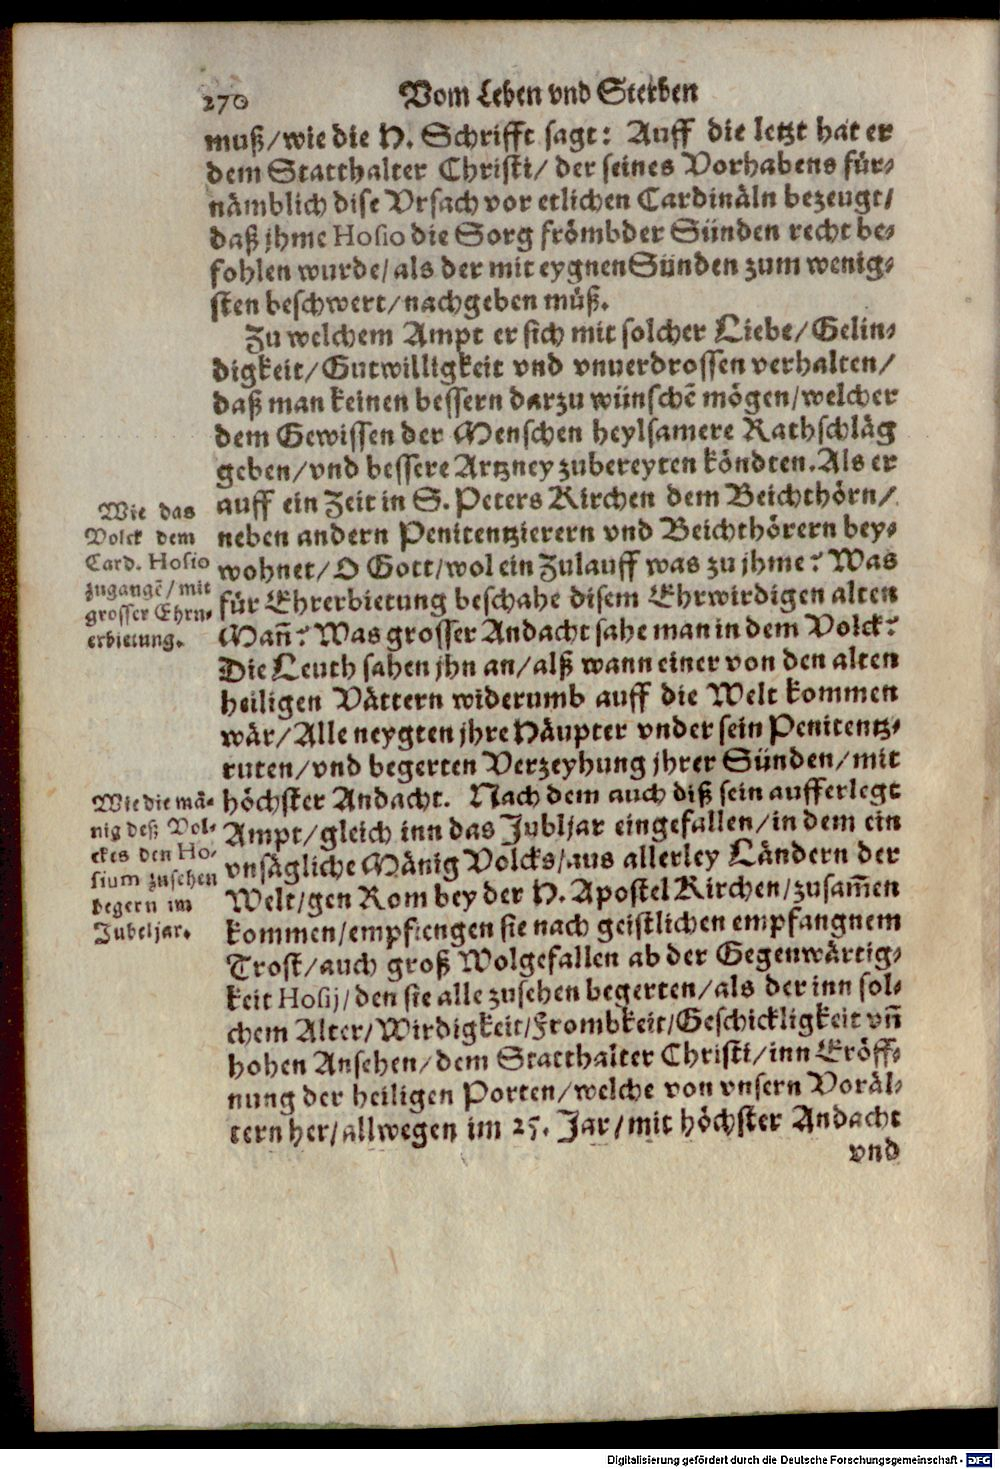 270 Vom Leben vnd Sterben
muß/wie die H. Schrifft sagt: Auff die letzt hat er
dem Statthalter Christi/ der seines Vorhabens für-
nämblich dise Vrsach vor etlichen Cardinäln bezeugt/
daß jhme Hosio die Sorg frömbder Sünden recht be-
fohlen wurde/als der mit eygnen Sünden zum wenig-
sten beschwert/nachgeben müß.
Zu welchem Ampt er sich mit solcher Liebe/Gelin-
digkeit/Gutwilligkeit vnd vnuerdrossen verhalten/
daß man keinen bessern darzu wünschẽ mögen/welcher
dem Gewissen der Menschen heylsamere Rathschläg
geben/vnd bessere Artzney zubereyten köndten. Als er
auff ein Zeit in S. Peters Kirchen dem Beichthörn/
neben andern Penitentzierern vnd Beichthörern bey-
wohnet/O Gott/wol ein Zulauff was zu jhme? Was
für Ehrerbietung beschahe disem Ehrwirdigen alten
Mañ? Was grosser Andacht sahe man in dem Volck?
Die Leuth sahen jhn an/alß wann einer von den alten
heiligen Vättern widerumb auff die Welt kommen
wär/Alle neygten jhre Häupter vnder sein Penitentz-
ruten/vnd begerten Verzeyhung jhrer Sünden/mit
höchster Andacht. Nach dem auch diß sein aufferlegt
Ampt/gleich inn das Jubljar eingefallen/in dem ein
vnsägliche Mänig Volcks/aus allerley Ländern der
Welt/gen Rom bey der H. Apostel Kirchen/zusam̃en
kommen/empfiengen sie nach geistlichen empfangnem
Trost/auch groß Wolgefallen ab der Gegenwärtig-
keit Hosij/den sie alle zusehen begerten/als der inn sol-
chem Alter/Wirdigkeit/Frombkeit/Geschickligkeit vñ
hohen Ansehen/dem Statthalter Christi/inn Eröff-
nung der heiligen Porten/welche von vnsern Voräl-
tern her/allwegen im 25. Jar/mit höchster Andacht
vnd
Wie das
Volck dem
Card. Hosio
zugangẽ/mit
grosser Ehrn-
erbietung.
Wie die mä-
nig deß Vol-
ckes den Ho-
sium zusehen
begern im
Jubeljar.
Digitalisierung gefördert durch die Deutsche Forschungsgemeinschaft - DFG